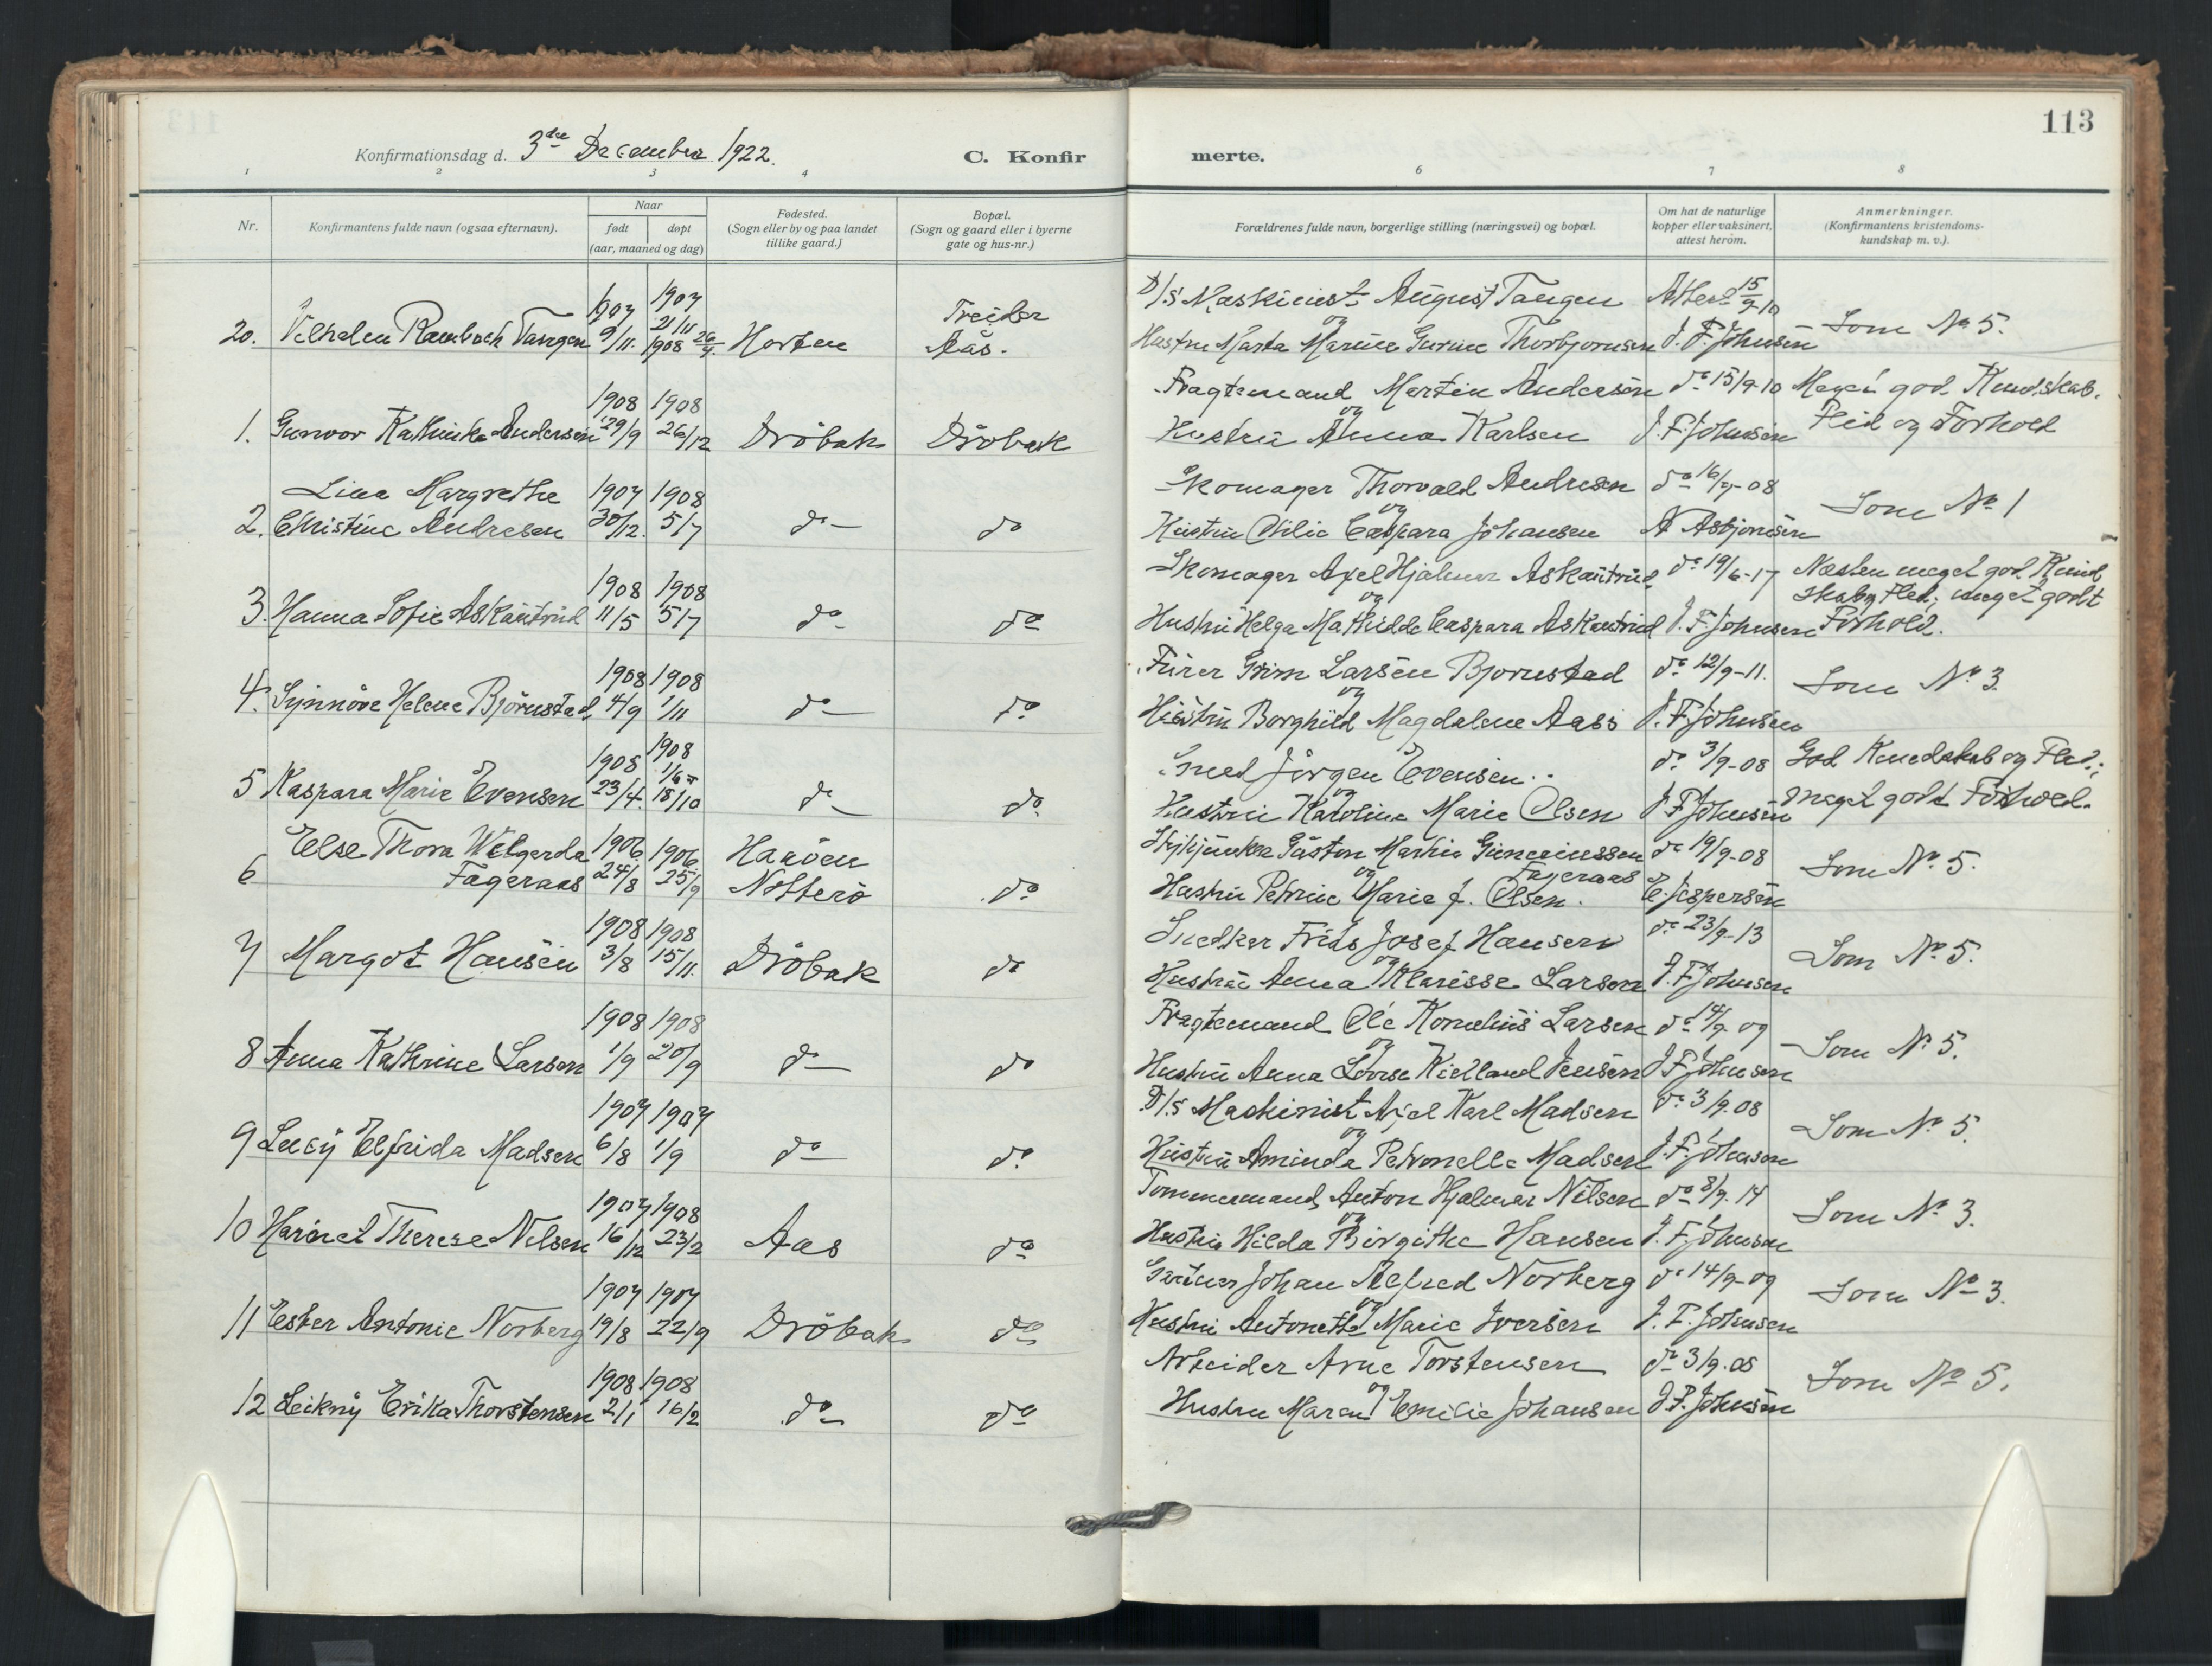 113
Konfirmationsdag d. 3die December 1922.
C. Konfir
merte.
1 2 3 4 6 7 8
Nr.
Konfirmantens fulde navn (ogsaa efternavn).
Naar
født døpt
(aar, maaned og dag)
Fødested.
(Sogn eller by og paa landet
tillike gaard.)
Bopæl.
(Sogn og gaard eller i byerne
gate og hus-nr.)
Forældrenes fulde navn, borgerlige stilling (næringsvei) og bopæl.
Om hat de naturlige
kopper eller vaksinert,
attest herom.
Anmerkninger.
(Konfirmantens kristendoms-
kundskap m. v.).
1907 1907 Treider D/s Maskinist August Tangen Attest 15/9-10
20. Vilhelm Rambech Tangen 9/11. 21/11 1908 26/4. Horten Aas. og Som No 5.
Hustru Marta Marine Gurine Thorbjornsen J. F. Johnsen
1908 1908 Fragtemand Martin Andersen do 15/9-10 Meget god Kundskab,
1. Gunvor Kathinka Andersen 29/9 26/12 Dröbak Dröbak og Hustru Anna Karlsen J. F. Johnsen Flid og Forhold
Lina Margrethe 1907 1908 Skomager Thorvald Andresen do 16/9-08
2. Christine Andresen 30/12. 5/7 do do og Hustru Otilie Caspara Johansen A Asbjornsen Som No 1
1908 1908 Skomager Axel Hjalmar Askautrud do 19/6-17 Næsten meget god Kund
3. Hanna Sofie Askautrud 11/5 5/7 do do og skab og Flid; meget godt
Hustru Helga Mathilde Caspara Askautrud J. F. Johnsen Forhold.
1908 1908 Fürer Grim Larsen Bjornstad do 12/9-11.
4. Synnöve Helene Björnstad 4/9 1/11 do do og Hustru Borghild Magdalene Aass J. F. Johnsen Som No 3.
1908 1908 Smed Jörgen Evensen do 3/9-08 God Kundskab og Flid;
5 Kaspara Marie Evensen 23/4. 18/10 do do og Hustru Karoline Marie Olsen J F Johnsen meget godt Forhold.
Else Thora Welgerda 1906 1906 Haaöen Gaston Martin Guneriussen do 19/9-08
6 Fageraas 24/8 25/9 Nötterö do og Fageraas Som No 5.
Hustru Petrine Marie f. Olsen. E. Jespersen
1908 1908 Snedker Frids Josef Hansen do 23/9-13
7 Margot Hansen 3/8 15/11. Dröbak do og Hustru Anna Klarisse Larsen J. F. Johnsen Som No 5.
1908 1908 Fragtemand Ole Kornelius Larsen do 14/9-09
8 Anna Kathrine Larsen 1/9 20/9 do do og Hustru Anna Lovise Kielland Jensen J F Johnsen Som No 5.
1907 1907 D/s Maskinist Axel Karl Madsen do 3/9.08
9 Lucy Elfrida Madsen 6/8 1/9 do do og Hustru Aminda Petronelle Madsen J. F. Johnsen Som No 5.
1907 1908 Tommermand Anton Hjalmar Nilsen do 8/9. 14
10 Harriet Therese Nilsen 16/12 23/2 Aas do og Hustru Hilda Birgitte Hansen J. F. Johnsen Som No 3.
1907 1907 Gartner Johan Alfred Norberg do 14/9-09
11 Ester Antonie Norberg 19/8 22/9 Dröbak do og Hustru Antonette Marie Iversen J. F. Johnsen Som No 3.
1908 1908 Arbeider Arne Torstensen do 3/9.08
12 Leikny Erika Thorstensen 2/1 16/2 do do og Hustru Maren Emilie Johansen J. F. Johnsen Som No 5.